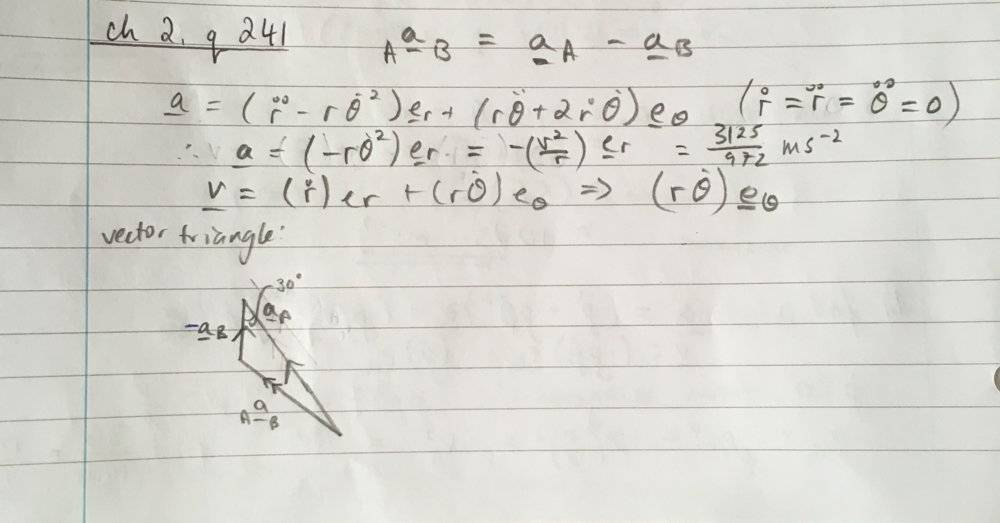 ch 2, q 241
A a B = a A - a B
a = (r̈ - rθ̇²) er + (rθ̈ + 2ṙθ̇) eθ (ṙ = r̈ = θ̈ = 0)
∴ a = (-rθ̇²) er = -(v²/r) er = 3125/972 ms⁻²
v = (ṙ) er + (rθ̇) eθ ⇒ (rθ̇) eθ
vector triangle:
30°
a A
-a B
A a B